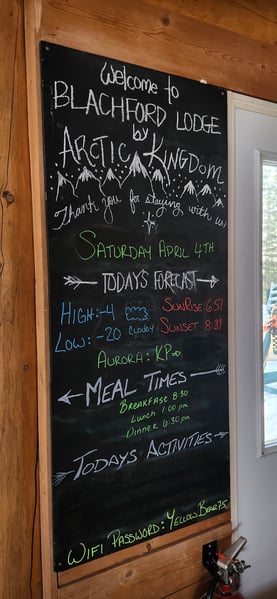 Welcome to
BLACHFORD LODGE
by
ARCTIC KINGDOM
Thank you for staying with us!
SATURDAY APRIL 4TH
TODAY'S FORECAST
HIGH: -4
SUNRISE 6:51
LOW: -20 Cloudy
SUNSET 8:31
AURORA: KP
MEAL TIMES
BREAKFAST 8:30
Lunch 1:00 pm
Dinner 6:30 pm
TODAYS ACTIVITIES
WIFI PASSWORD: YELLOWBEAR75